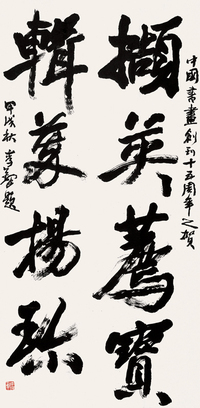 中國書畫創刊十五周年之賀
擷英薦寶
輯美揚珍
甲戌秋李鐸題